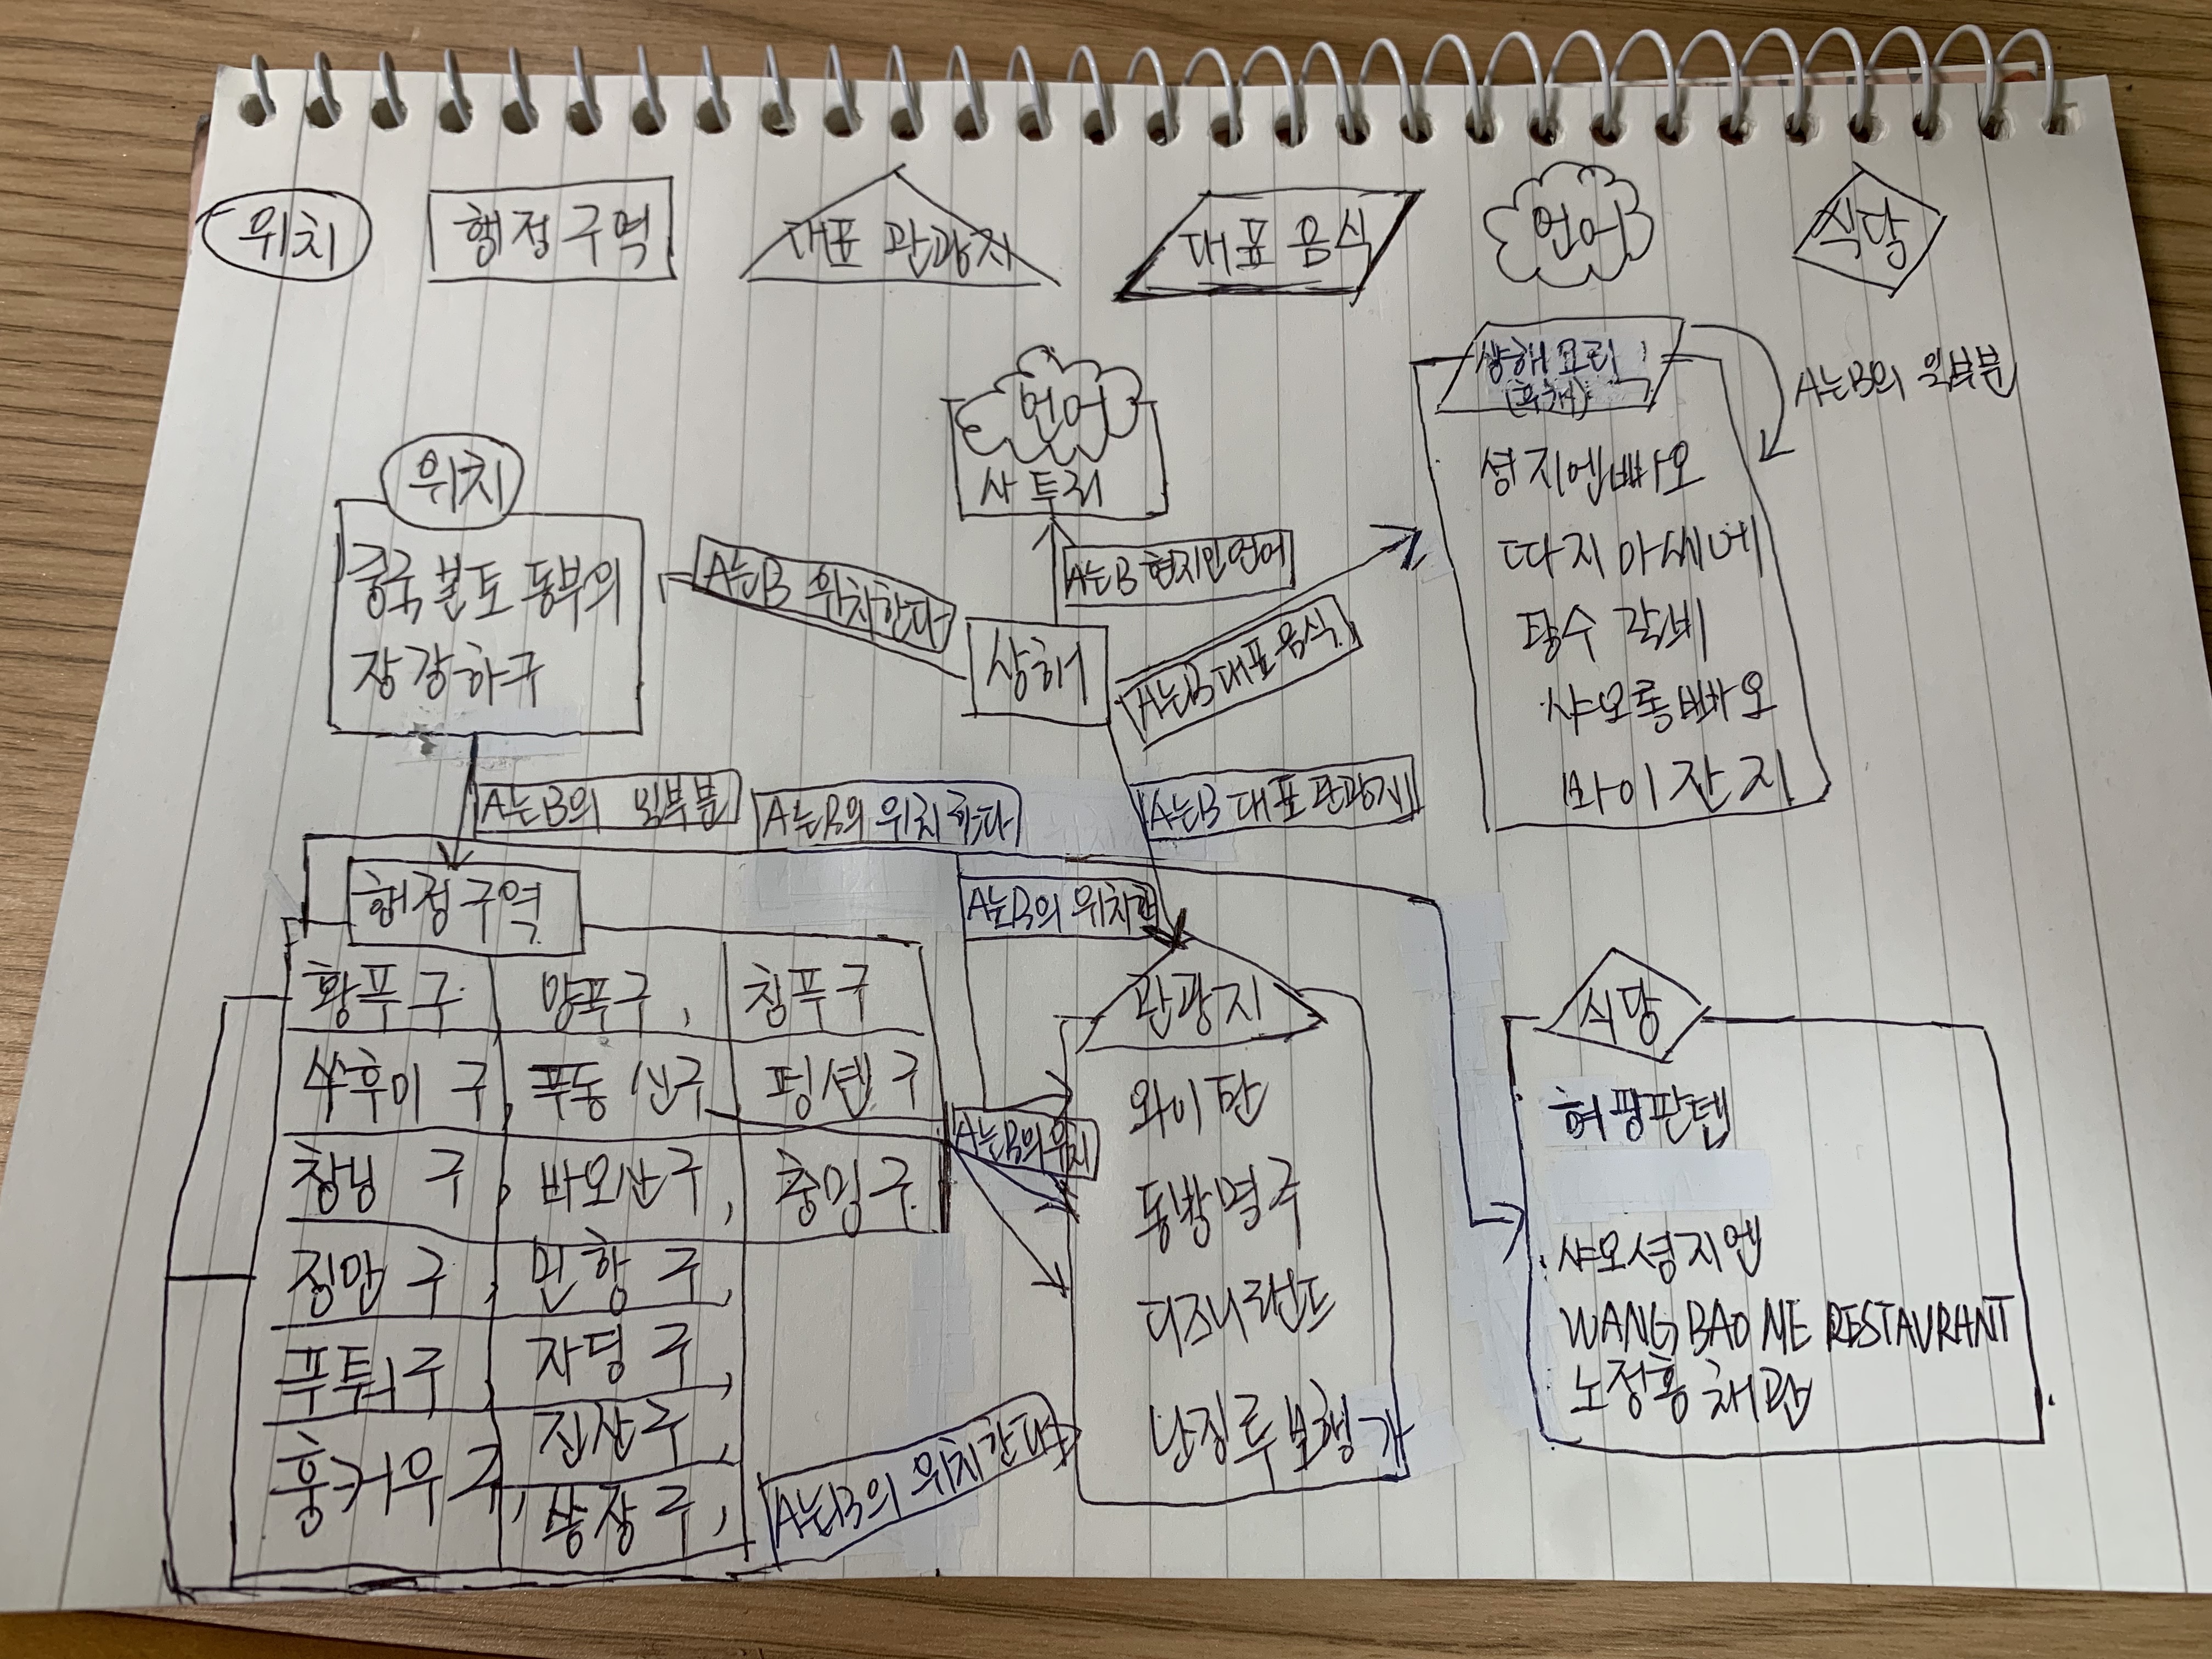 위치
행정구역
대표 관광지
대표 음식
언어
식당
상해요리
A는B의 일부분
셩지엔빠오
따지아씨에
탕수 갈비
샤오롱빠오
바이잔지
언어
사투리
위치
중국 본토 동부의
장강하구
A는B 위치한다
A는B 현지인언어
상해
A는B 대표음식
A는B의 일부분
A는B의 위치하다
A는B 대표관광지
A는B의 위치한
행정구역
황푸구 양푸구, 칭푸구
쑤후이 구, 푸동신구 펑셴구
창닝 구, 바오산구, 충밍구
징안 구, 민항 구,
푸퉈구, 자딩구,
훙커우구, 진산구,
송장구,
A는B의위치
A는B의 위치한다
관광지
와이탄
동방명주
디즈니랜드
난징루보행가
식당
허핑판텐
샤오셩지엔
WANG BAO ME RESTAURANT
노정흥채관